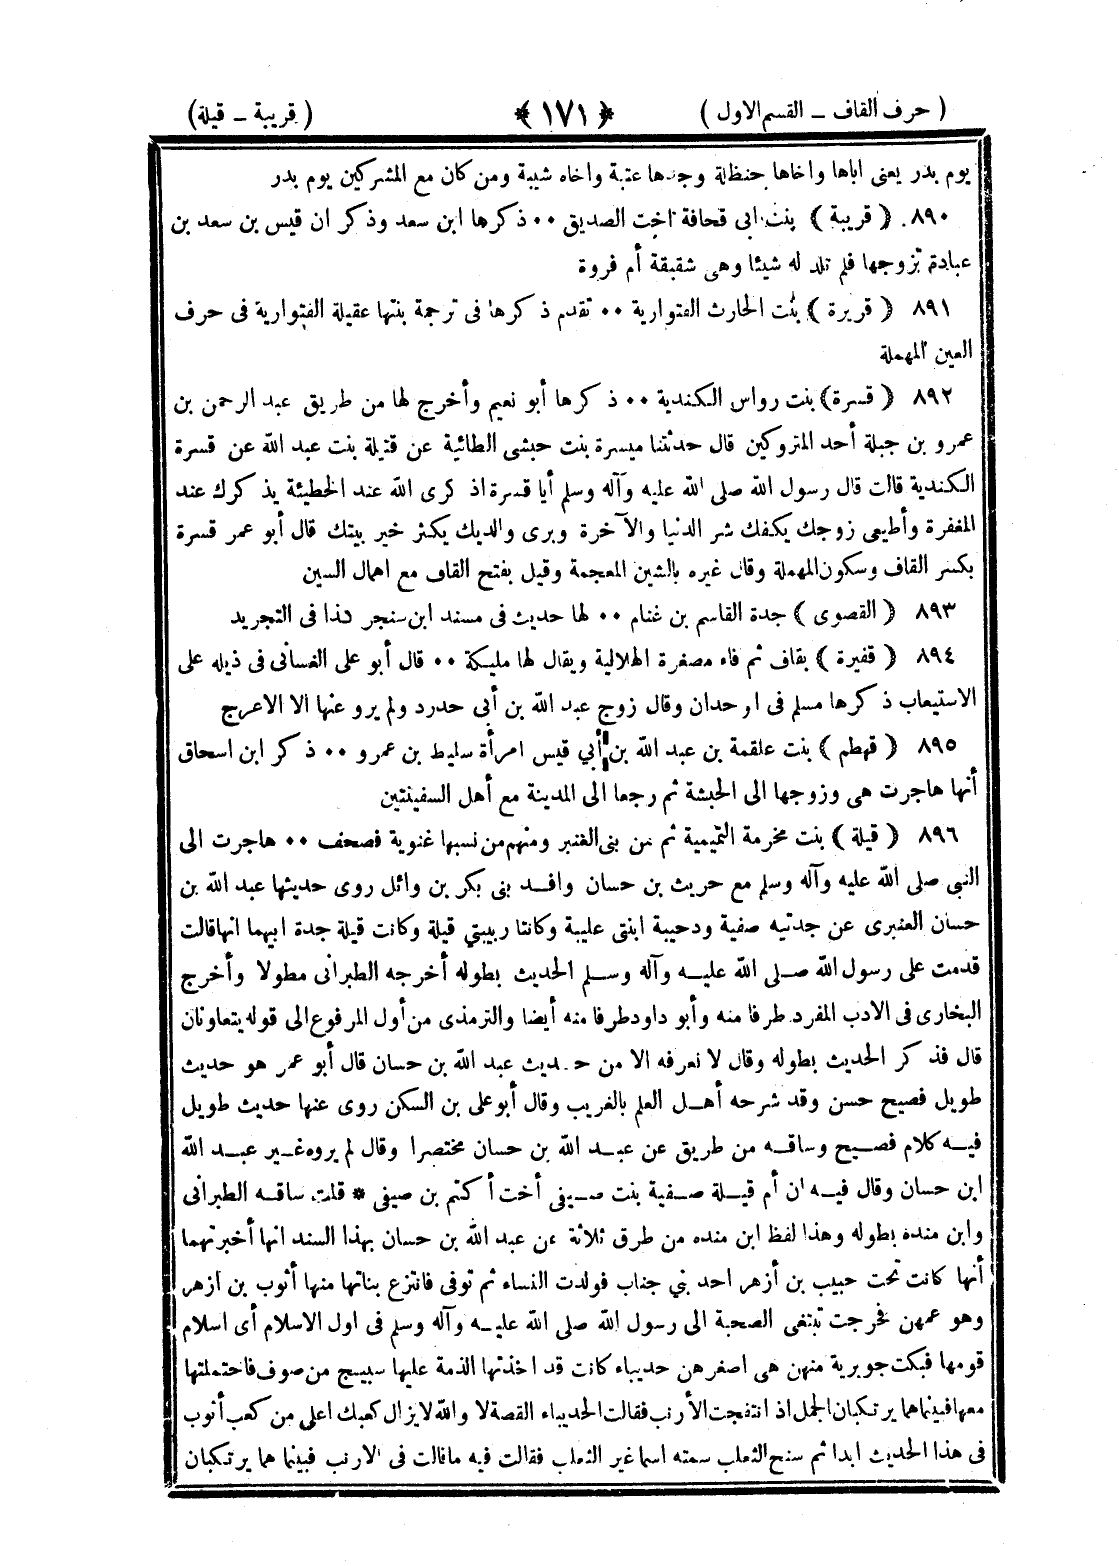 ( حرف القاف – القسم الاول )
﴿ ١٧١ ﴾
( قريبة – قيلة )
يوم بدر يعنى اباها واخاها حنظلة وجدها عتبة واخاه شيبة ومن كان مع المشركين يوم بدر
٨٩٠ ﴿ قريبة ﴾ بنت ابى قحافة اخت الصديق ٠٠ ذكرها ابن سعد وذكر ان قيس بن سعد بن
عبادة تزوجها فلم تلد له شيئا وهى شقيقة أم فروة
٨٩١ ﴿ قريرة ﴾ بنت الحارث الفتوارية ٠٠ تقدم ذكرها فى ترجمة بنتها عقيلة الفتوارية فى حرف
العين المهملة
٨٩٢ ﴿ قسرة ﴾ بنت رواس الكندية ٠٠ ذكرها أبو نعيم وأخرج لها من طريق عبد الرحمن بن
عمرو بن جبلة أحد المتروكين قال حدثتنا ميسرة بنت حبشى الطائية عن قتيلة بنت عبد الله عن قسرة
الكندية قالت قال رسول الله صلى الله عليه وآله وسلم أيا قسرة اذكرى الله عند الخطيئة يذكرك عند
المغفرة وأطيعى زوجك يكفك شر الدنيا والآخرة وبرى والديك يكثر خير بيتك قال أبو عمر قسرة
بكسر القاف وسكون المهملة وقال غيره بالشين المعجمة وقيل بفتح القاف مع اهمال السين
٨٩٣ ﴿ القصوى ﴾ جدة القاسم بن غنام ٠٠ لها حديث فى مسند ابن سنجر كذا فى التجريد
٨٩٤ ﴿ قفيرة ﴾ بقاف ثم فاء مصغرة الهلالية ويقال لها مليكة ٠٠ قال أبو على الغسانى فى ذيله على
الاستيعاب ذكرها مسلم فى الوحدان وقال زوج عبد الله بن أبى حدرد ولم يرو عنها الا الاعرج
٨٩٥ ﴿ قهطم ﴾ بنت علقمة بن عبد الله بن أبي قيس امرأة سليط بن عمرو ٠٠ ذكر ابن اسحاق
أنها هاجرت هى وزوجها الى الحبشة ثم رجعا الى المدينة مع أهل السفينتين
٨٩٦ ﴿ قيلة ﴾ بنت مخرمة التميمية ثم من بنى العنبر ومنهم من نسبها غنوية فصحف ٠٠ هاجرت الى
النبي صلى الله عليه وآله وسلم مع حريث بن حسان وافد بنى بكر بن وائل روى حديثها عبد الله بن
حسان العنبرى عن جدتيه صفية ودحيبة ابنتى عليبة وكانتا ربيبتي قيلة وكانت قيلة جدة ابيهما انها قالت
قدمت على رسول الله صلى الله عليه وآله وسلم الحديث بطوله أخرجه الطبرانى مطولا وأخرج
البخارى فى الادب المفرد طرفا منه وأبو داود طرفا منه أيضا والترمذى من أول المرفوع الى قوله يتعاونان
قال فذكر الحديث بطوله وقال لا نعرفه الا من حديث عبد الله بن حسان قال أبو عمر هو حديث
طويل فصيح حسن وقد شرحه أهل العلم بالغريب وقال أبو على بن السكن روى عنها حديث طويل
فيه كلام فصيح وساقه من طريق عن عبد الله بن حسان مختصرا وقال لم يروه غير عبد الله
ابن حسان وقال فيه ان أم قيلة صفية بنت صيفى أخت أكثم بن صيفى * قلت ساقه الطبرانى
وابن منده بطوله وهذا لفظ ابن منده من طرق ثلاثة عن عبد الله بن حسان بهذا السند انها أخبرتهما
أنها كانت تحت حبيب بن أزهر احد بني جناب فولدت النساء ثم توفى فانتزع بناتها منها أثوب بن ازهر
وهو عمهن فخرجت تبتغى الصحبة الى رسول الله صلى الله عليه وآله وسلم فى اول الاسلام أى اسلام
قومها فبكت جويرية منهن هى اصغرهن حديباء كانت قد اخذتها الذمة عليها سبيج من صوف فاحتملتها
معها فبينما هما يرتكبان الجمل اذ انتفجت الأرنب فقالت الحديباء القصة لا والله لا يزال كعبك اعلى من كعب أثوب
فى هذا الحديث ابدا ثم سنح الثعلب سمته اسما غير الثعلب فقالت فيه ماقالت فى الارنب فبينما هما يرتكبان